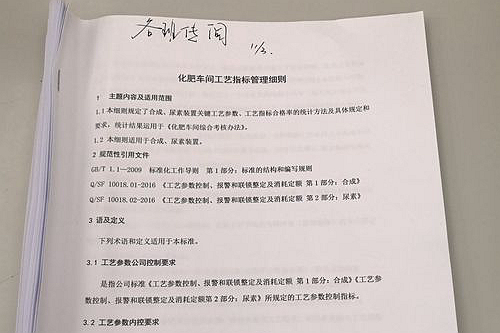 各班传阅 11/3.
化肥车间工艺指标管理细则
1 主题内容及适用范围
1.1本细则规定了合成、尿素装置关键工艺参数、工艺指标合格率的统计方法及具体规定和
要求，统计结果运用于《化肥车间综合考核办法》。
1.2 本细则适用于合成、尿素装置。
2 规范性引用文件
GB/T 1.1—2009 标准化工作导则 第1部分：标准的结构和编写规则
Q/SF 10018.01-2016 《工艺参数控制、报警和联锁整定及消耗定额 第1部分：合成》
Q/SF 10018.02-2016 《工艺参数控制、报警和联锁整定及消耗定额 第2部分：尿素》
3 语及定义
下列术语和定义适用于本标准。
3.1 工艺参数公司控制要求
是指公司标准《工艺参数控制、报警和联锁整定及消耗定额 第1部分：合成》《工艺参
数控制、报警和联锁整定及消耗定额第2部分：尿素》所规定的工艺参数控制指标。
3.2 工艺参数内控要求